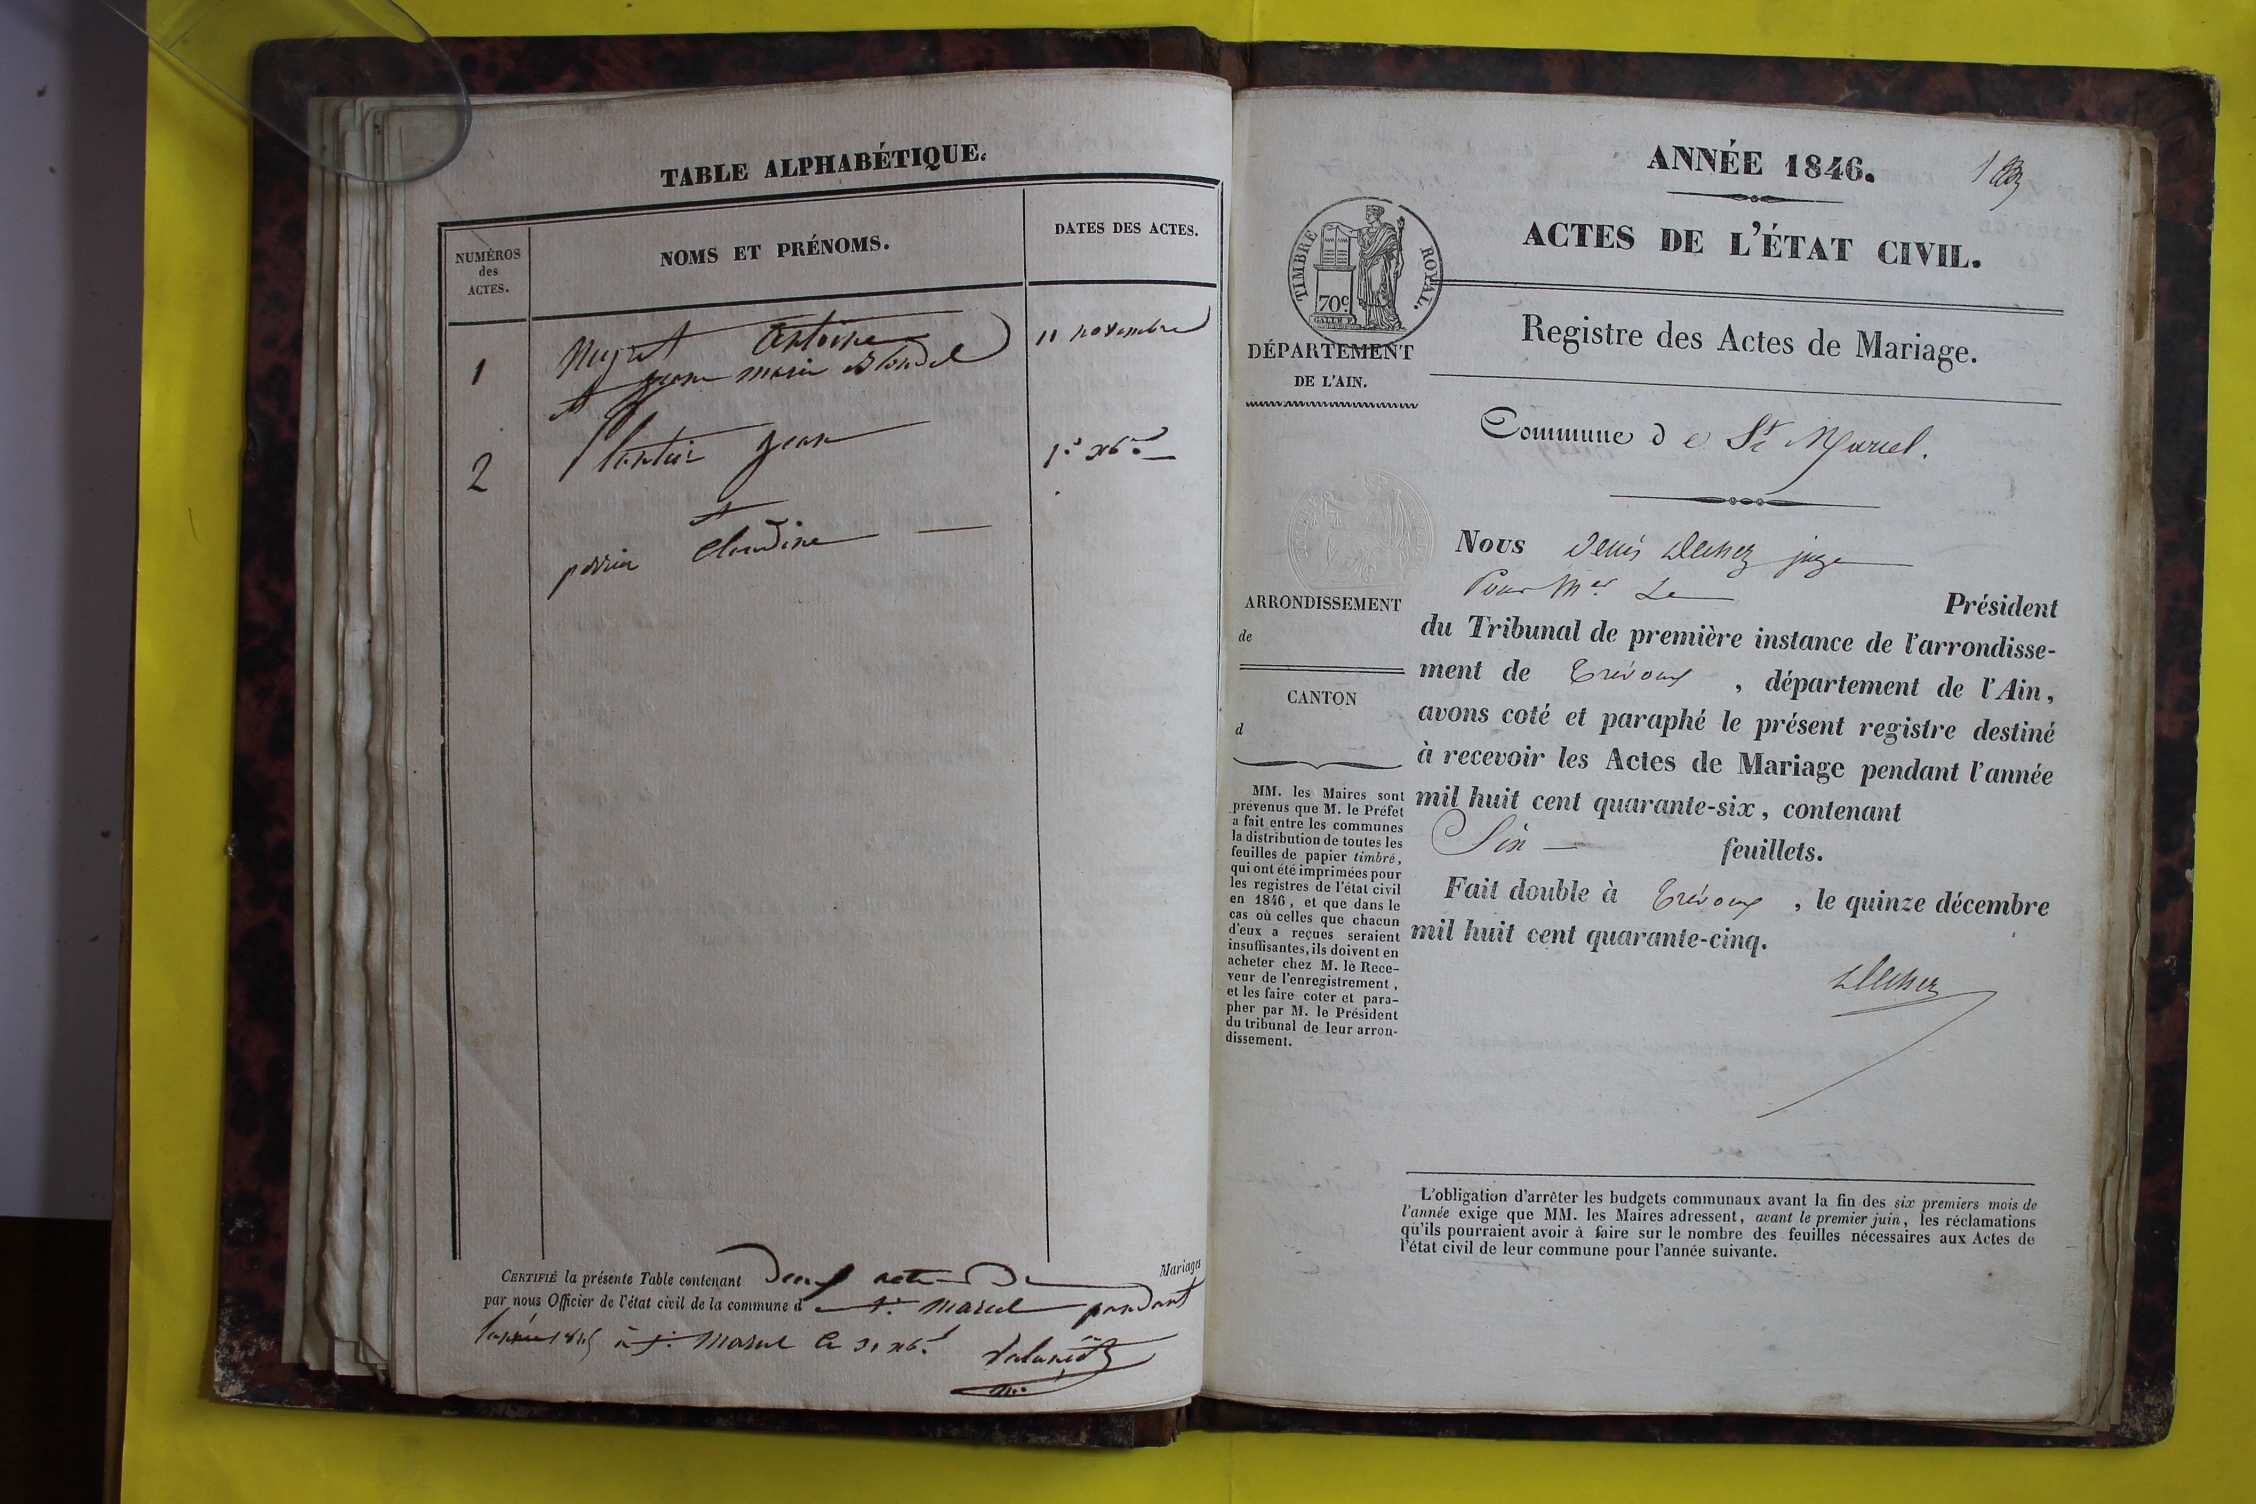 TABLE ALPHABÉTIQUE.
NUMÉROS
des
ACTES.
NOMS ET PRÉNOMS.
DATES DES ACTES.
1
Antoine
11 novembre
et jeane marie Blondel
2
jean
1er xbre
et
perrin Claudine
CERTIFIÉ la présente Table contenant Deux actes De Mariages
par nous Officier de l'état civil de la commune d e St marcel pendant
l'année 1845 à St Marcel le 31 xbre
ANNÉE 1846.
1
ACTES DE L'ÉTAT CIVIL.
TIMBRE ROYAL.
70c
GALLE F
DÉPARTEMENT
DE L'AIN.
Registre des Actes de Mariage.
Commune d e St Marcel.
ARRONDISSEMENT
de
CANTON
d
MM. les Maires sont
prévenus que M. le Préfet
a fait entre les communes
la distribution de toutes les
feuilles de papier timbré,
qui ont été imprimées pour
les registres de l'état civil
en 1846, et que dans le
cas où celles que chacun
d'eux a reçues seraient
insuffisantes, ils doivent en
acheter chez M. le Rece-
veur de l'enregistrement,
et les faire coter et para-
pher par M. le Président
du tribunal de leur arron-
dissement.
Nous Denis juge
Pour Mr Le Président
du Tribunal de première instance de l'arrondisse-
ment de Trévoux, département de l'Ain,
avons coté et paraphé le présent registre destiné
à recevoir les Actes de Mariage pendant l'année
mil huit cent quarante-six, contenant
Six feuillets.
Fait double à Trévoux, le quinze décembre
mil huit cent quarante-cinq.
L'obligation d'arrêter les budgets communaux avant la fin des six premiers mois de
l'année exige que MM. les Maires adressent, avant le premier juin, les réclamations
qu'ils pourraient avoir à faire sur le nombre des feuilles nécessaires aux Actes de
l'état civil de leur commune pour l'année suivante.